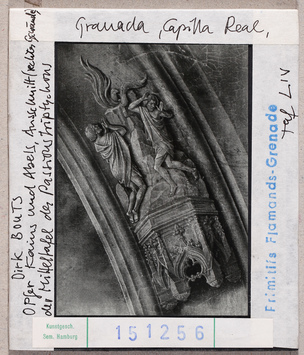 Granada, Capilla Real,
Dirk Bouts
Opfer Kains und Abels, Ausschnitt (rechtes Gewände)
der Mitteltafel des Passionstriptychons
Primitifs Flamands-Grenade
Taf LIV
Kunstgesch.
Sem. Hamburg
151256